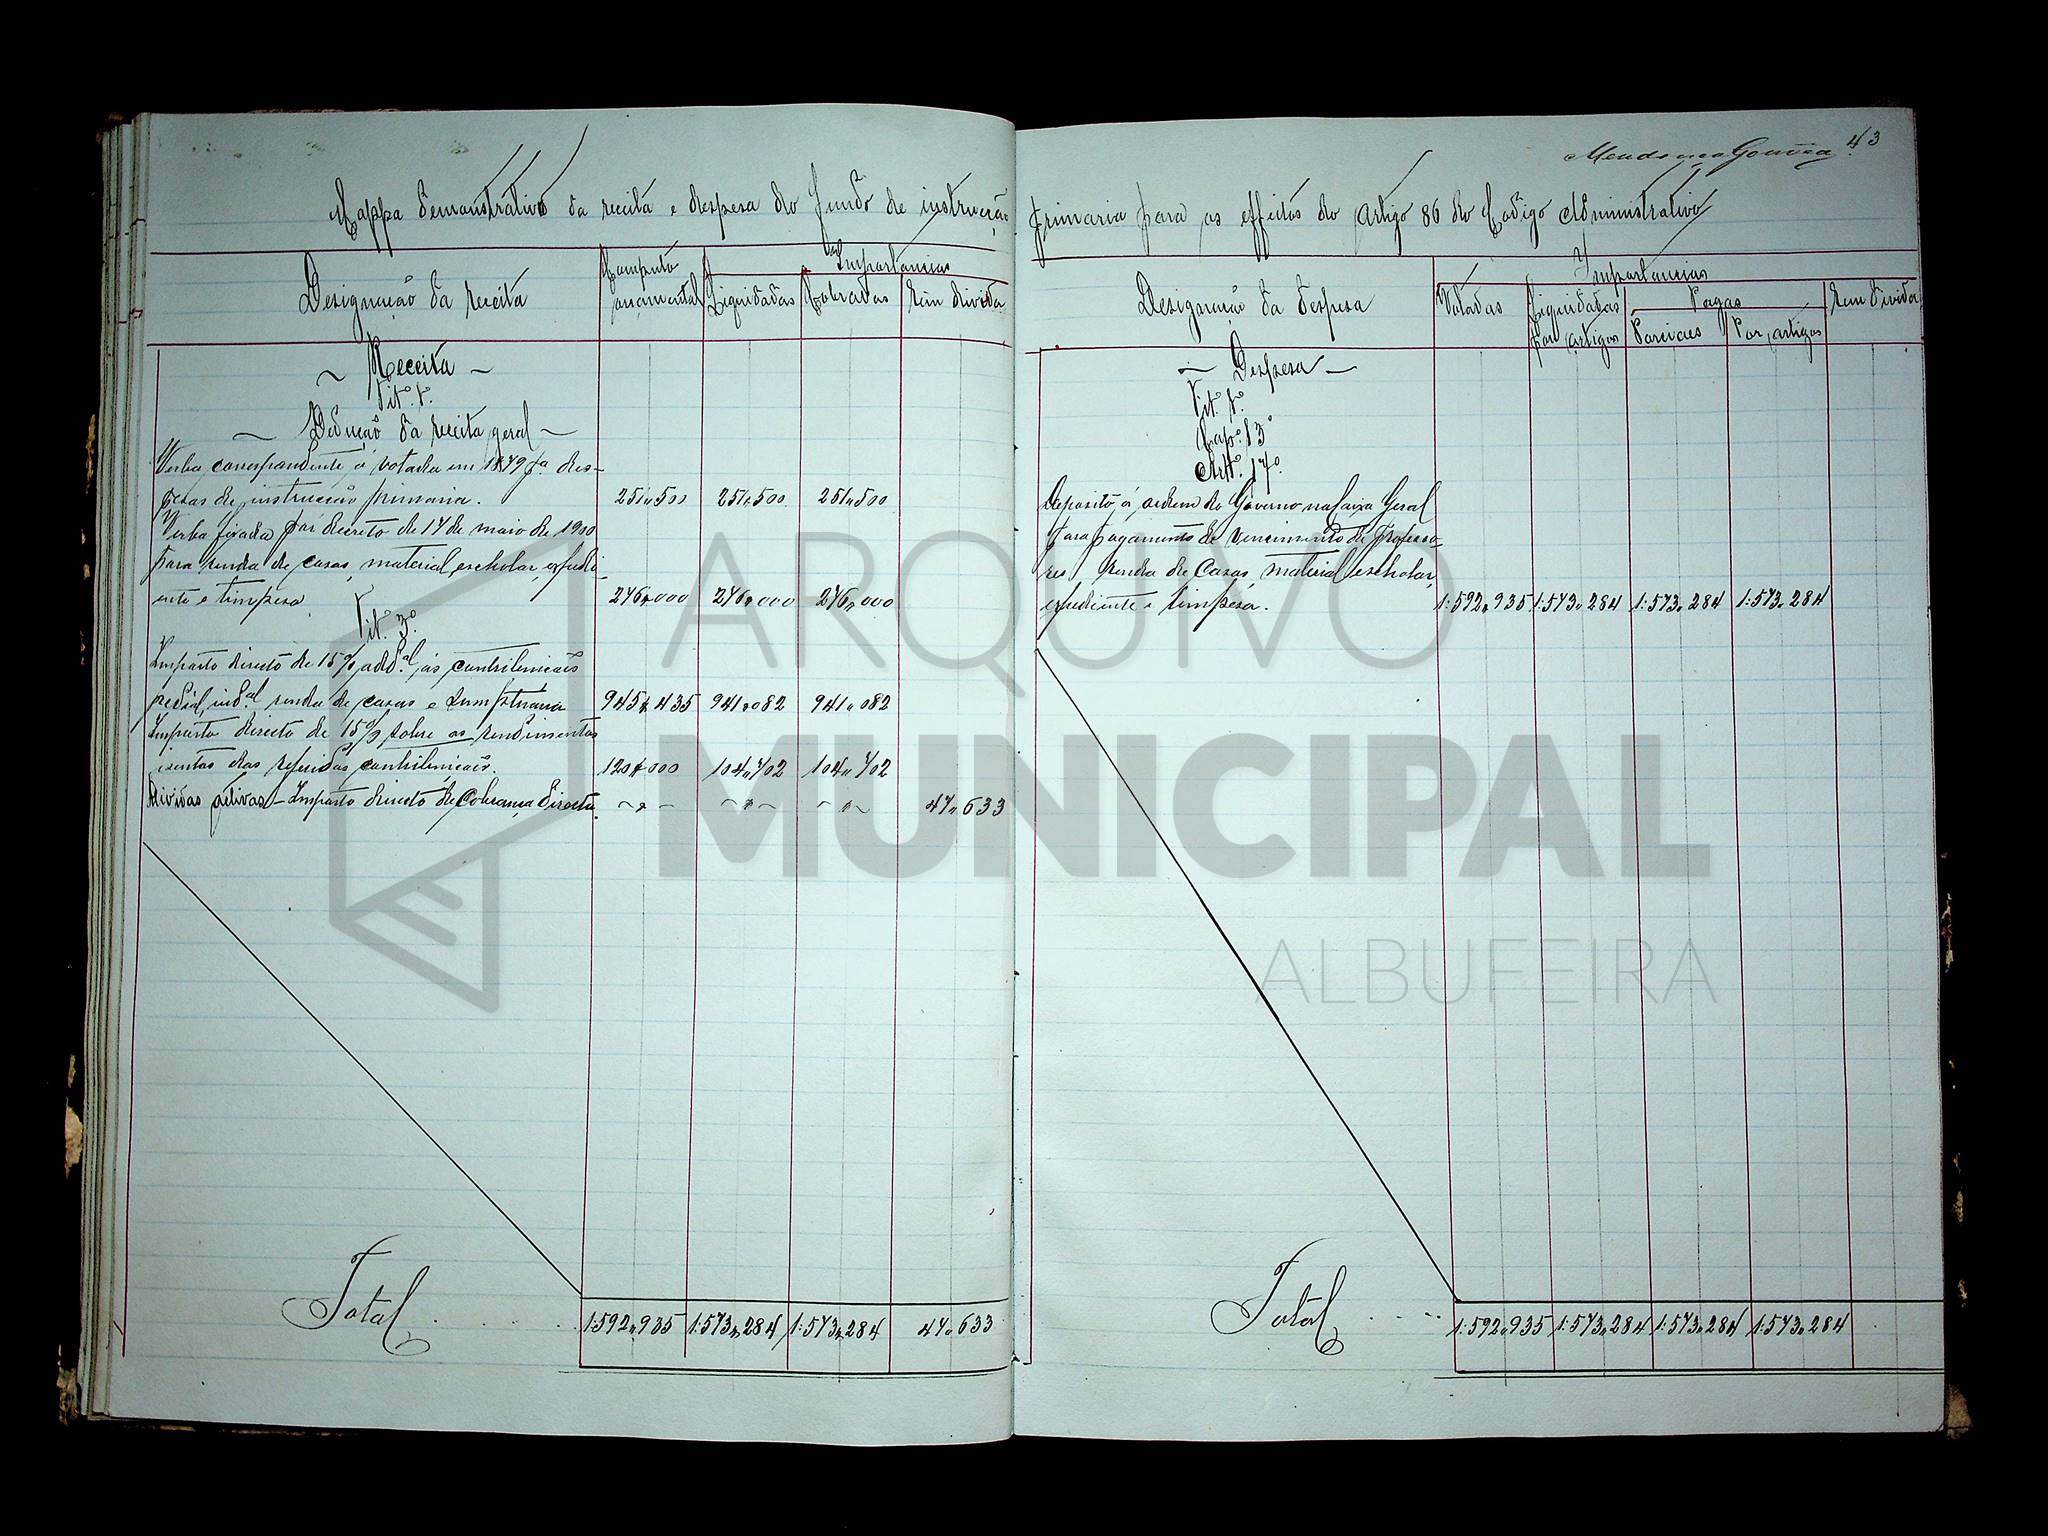 Mendonça Gouvêa 43
Mappa demonstrativo da receita e despesa do fundo de instrucção primaria para os effeitos do artigo 86 do Codigo Administrativo
Designação da receita
Computo orçamental
Importancias
Liquidadas
Cobradas
Em divida
~ Receita ~
Tit.º 1.º
~ Dedução da receita geral ~
Verba correspondente á votada em 1879 p.a des-
pezas de instrucção primaria. 251,500 251,500 251,500
Verba fixada por decreto de 17 de maio de 1900
para renda de casas, material escholar, expedi-
ente e limpesa 276,000 276,000 276,000
Tit.º 3.º
Imposto directo de 15% add.al ás contribuicões
predial, ind.al renda de casas e sumptuaria 945,435 941,082 941,082
Imposto directo de 15% sobre os rendimentos
isentos das referidas contribuicões. 120,000 104,702 104,702
Dividas activas - Imposto directo de Cobrança directa ~ " ~ ~ " ~ ~ " ~ 47,633
Total 1:592,935 1:573,284 1:573,284 47,633
Designação da despesa
Importancias
Votadas
Liquidadas por artigos
Pagas
Parciaes
Por artigos
Em divida
~ Despesa ~
Tit.º 1.º
Cap.º 13º
Art.º 17º
Deposito á ordem do Governo na Caixa Geral
para pagamento de vencimento de professo-
res renda de Casas, material escholar,
expediente e limpesa. 1:592,935 1:573,284 1:573,284 1:573,284
Total 1:592,935 1:573,284 1:573,284 1:573,284
ARQUIVO
MUNICIPAL
ALBUFEIRA